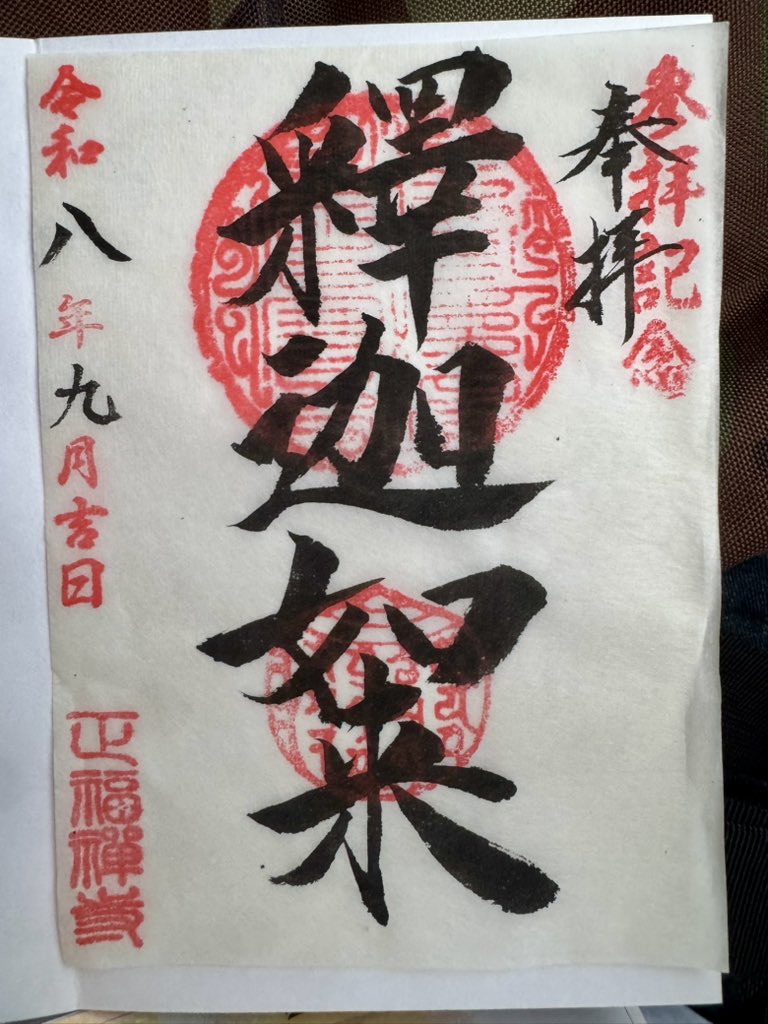 参拝記念
奉拝
釋迦如来
令和八年九月吉日
正福禅寺